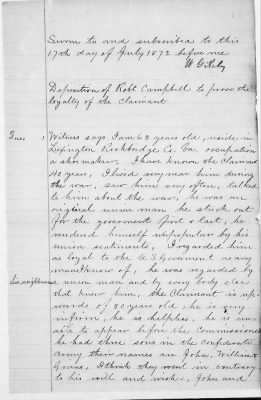 Sworn to and subscribed to this
17th day of July 1872 before me
Deposition of Robt Campbell to prove the
loyalty of the Claimant
Witness says I am 63 years old, reside in
Lexington Rockbridge Co. Va. occupation
a shoe maker, I have known the Claimant
40 years, I lived very near him during
the war, saw him very often, talked
to him about the war, he was an
original union man he stuck out
for the government first & last, he
rendered himself unpopular by his
union sentiments, I regarded him
as loyal to the U S Government as any
man I know of, he was regarded by
a union man and by every body else
that knew him, the Claimant is up-
wards of 80 years old, he is very
infirm, he is helpless, he is un-
able to appear before the Commissioner
he had three sons in the confederate
army their names are John, William &
I think they went in contrary
to his will and wishes, John and